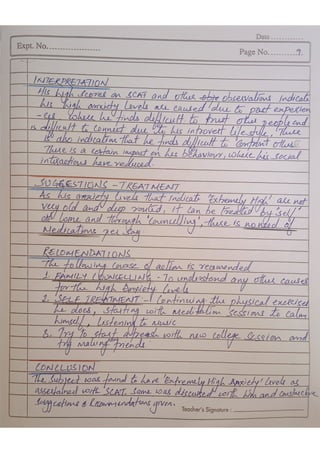 Date
Expt. No.
Page No. 9
INTERPRETATION
His high scores on SCAT and other observations indicate
his high anxiety levels are caused due to past experien
-ces, where he finds difficult to trust other people and
is difficult to connect due to his introvert lifestyle, There
is also indication that he finds difficult to
There is a certain impact on his behaviour, where his social
interactions have reduced.
SUGGESTIONS - TREATMENT
As his anxiety levels that indicate 'Extremely High' are not
very old and deep routed, it can be treated by 'self'
at home and through 'councelling', there is no need of
Medications per
RECOMENDATIONS
The following course of action is recomended
1. FAMILY COUNCELLING - To understand any other causes
for the high Anxiety levels
2. 'SELF TREATMENT - Continuing the physical exercises
he does, starting with Meditation sessions to calm
himself, Listening to Music
3. Try to start afresh with new college session and
try making friends
CONCLUSION
The Subject was found to have 'Extremely High Anxiety' levels as
assertained with SCAT. Same was discussed with him and constructive
suggestions & Recommendations given.
Teacher's Signature :